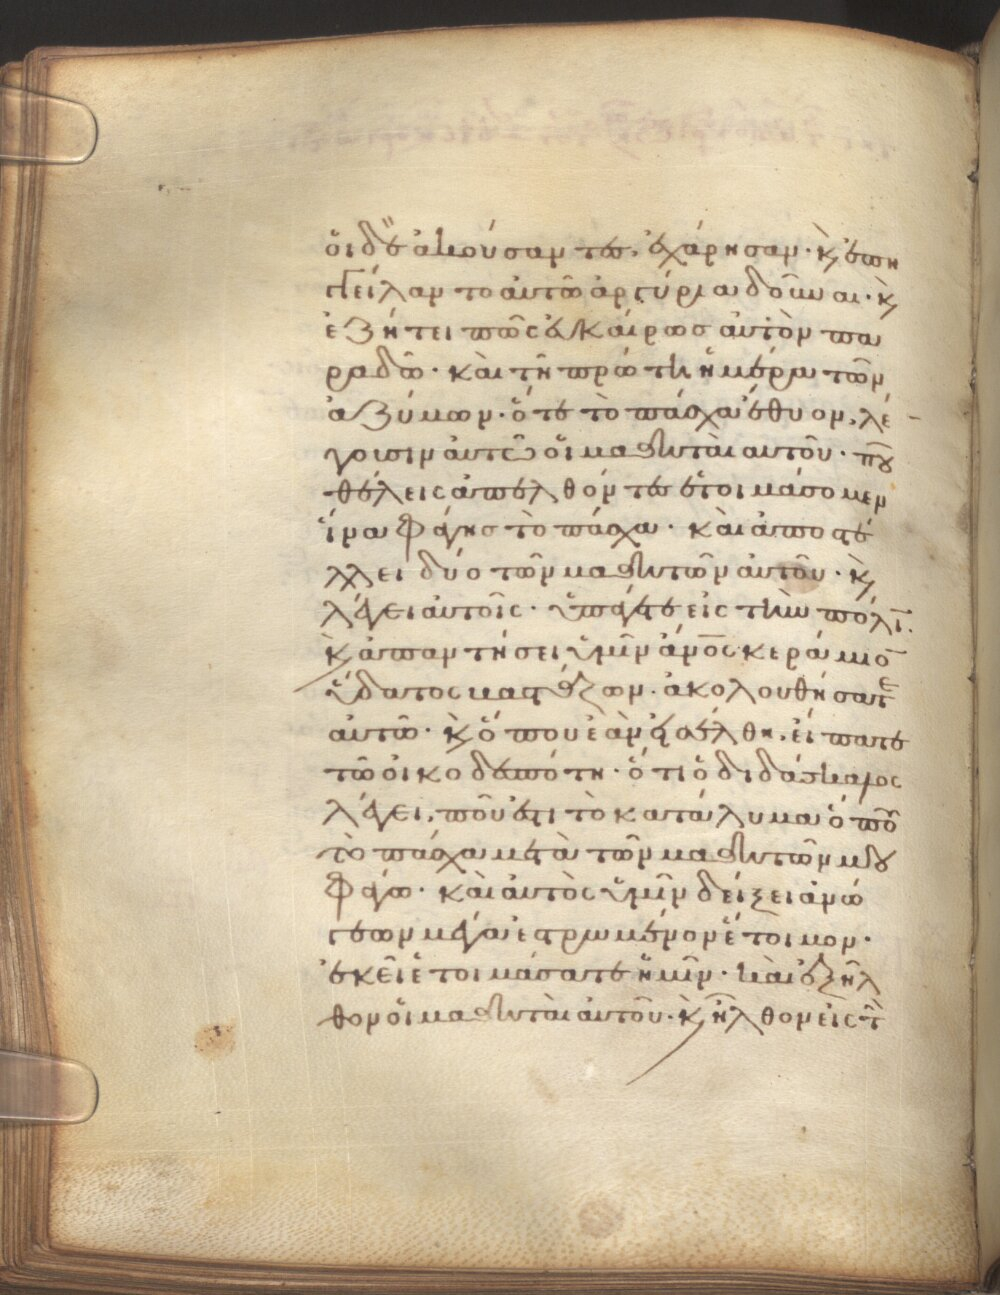 ὅι δὲ ἀκούσαντες, ἐχάρησαν· κ ἐπη
γγείλαντο ἀυτῶ ἀργύρια δοῦναι· κ
ἐζήτει πῶς ἐυκαίρωσ ἀυτὸν πα
ραδῶ· καὶ τῆ πρώτη ἡμέρα τῶν
ἀζύμων· ὅτε τὸ πάσχα ἔθυον, λέ
γουσιν ἀυτῶ ὁι μαθηται αυτοῦ· ποῦ
θέλεις ἀπελθόντες ἑτοιμάσομεν
ἵνα φάγησ τὸ πάσχα· καὶ ἀποστέ
λλει δύο τῶν μαθητῶν ἀυτοῦ· κ
λέγει αυτοῖς· ὑπάγετε εἰς τὴν πόλι
κ ἀπαντήσει ὑμῖν ἄνος κεράμιο
ὕδατος βαστάζων· ἀκολουθήσατε
ἀυτῶ· κ ὅπου ἐὰν εἰσέλθη, ἐίπατε
τῶ ὀικοδεσπότη· ὅτι ὁ διδάσκαλος
λέγει, ποῦ ἐστι τὸ κατάλυμα ὅπου
τὸ πάσχα μετὰ τῶν μαθητῶν μου
φάγω· καὶ ἀυτὸς ὑμῖν δείξει ἀνώ
γεων μέγα ἐστρωμένον ἕτοιμον·
ἐκεῖ ἑτοιμάσατε ἡμῖν· καὶ ἐξῆλ
θον ὁι μαθηταὶ ἀυτοῦ· κ ἦλθον εἰς τὴ